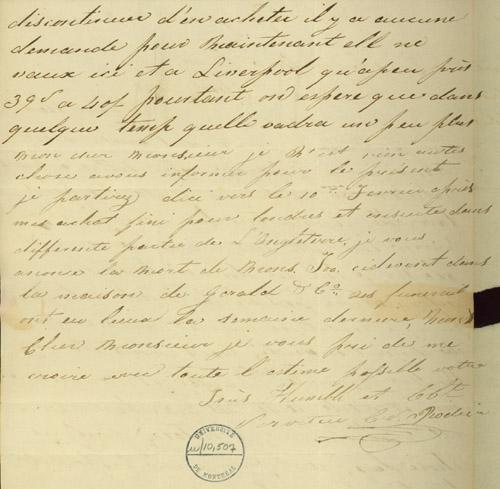 discontinuer d'en acheter il y a aucune
demande pour Maintenant ell ne
vaux ici et a Liverpool qu'apeu près
39s a 40s pourtant on espere que dans
quelque temp quelle vadra un peu plus
mon cur Monsieur je n'est rien autre
chose avous informer pour le present
je partirez dici vers le 10 Fevrier après
mes achat fini pour londres et ensuite dans
differente partie de L'Engletere, je vous
anonce la Mort de Mons. Jno. cidevent dans
la maison de Gerald & Co. ses funerail
ont eu lieux la semaine derniere, Mon
Cher Monsieur je vous pri de me
croire avec toute l'estime possible votre
Très Humble et Obt.
Serviteur Rodier
UNIVERSITÉ
u/10,507
DE MONTRÉAL